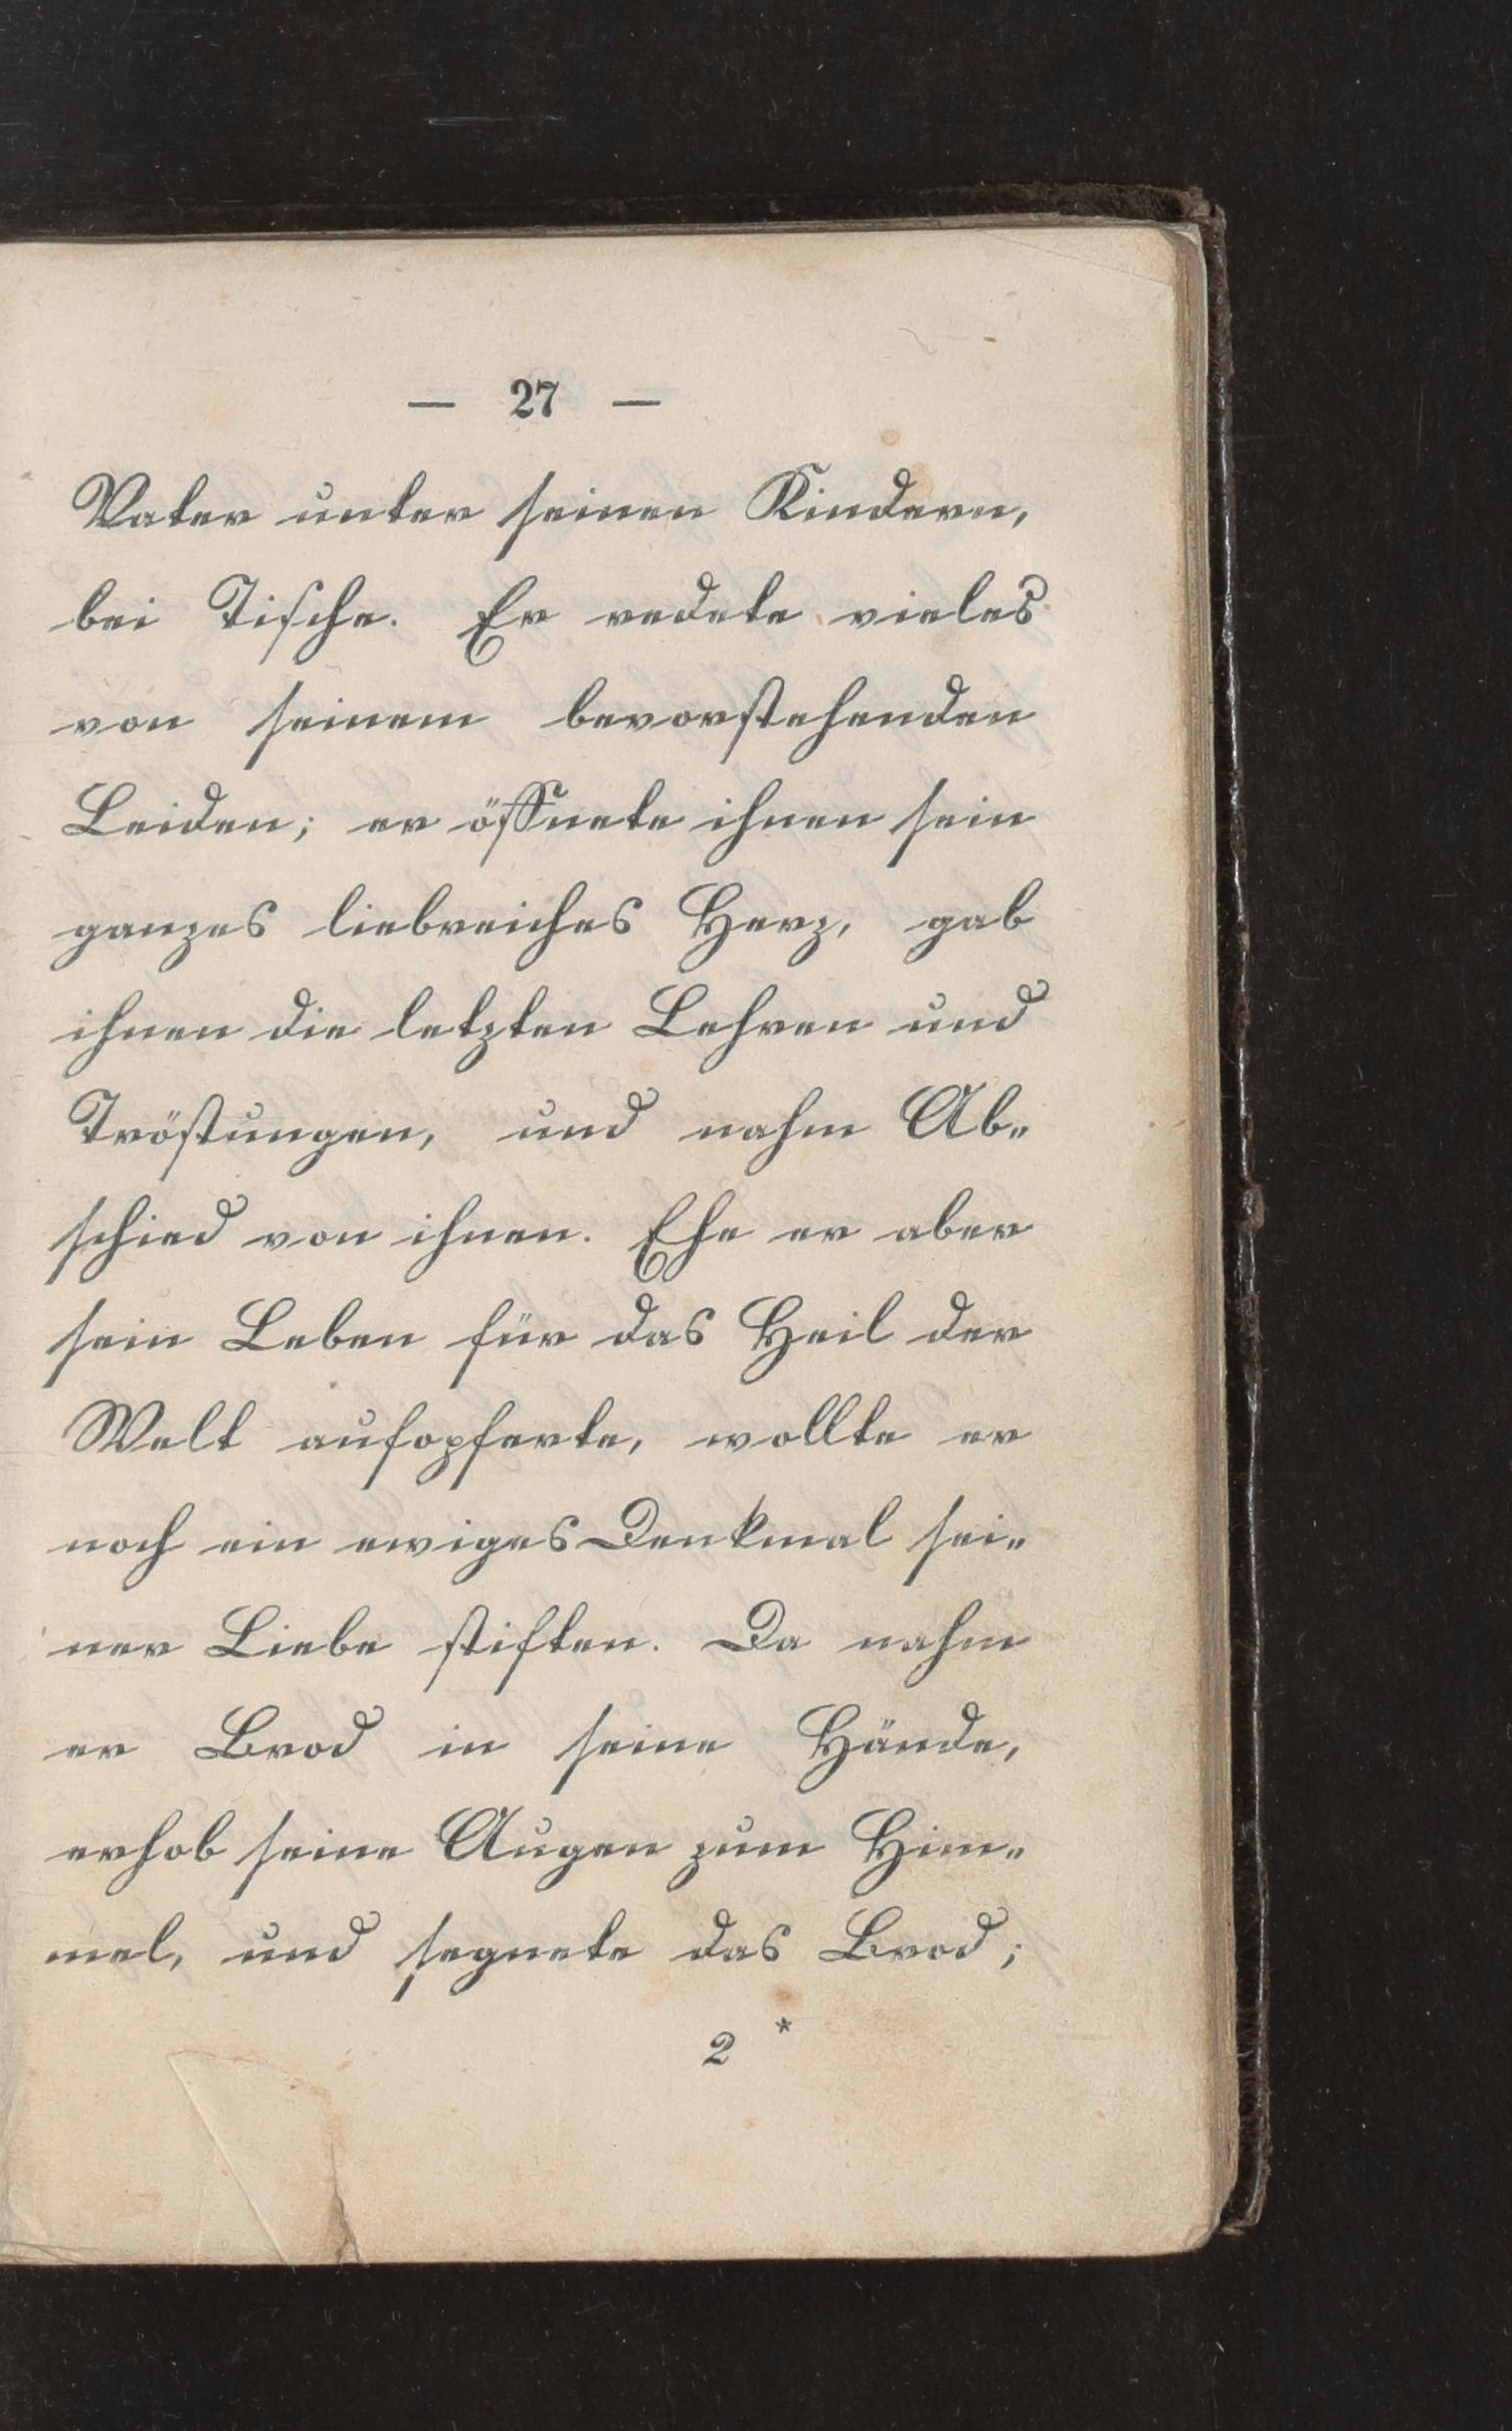 — 27 —
Vater unter seinen Kindern,
bei Tische. Er redete vieles
von seinem bevorstehenden
Leiden; er öffnete ihnen sein
ganzes liebreiches Herz, gab
ihnen die letzten Lehren und
Tröstungen, und nahm Ab-
schied von ihnen. Ehe er aber
sein Leben für das Heil der
Welt aufopferte, wollte er
noch ein ewiges Denkmal sei-
ner Liebe stiften. Da nahm
er Brod in seine Hände,
erhob seine Augen zum Him-
mel, und segnete das Brod;
2 *